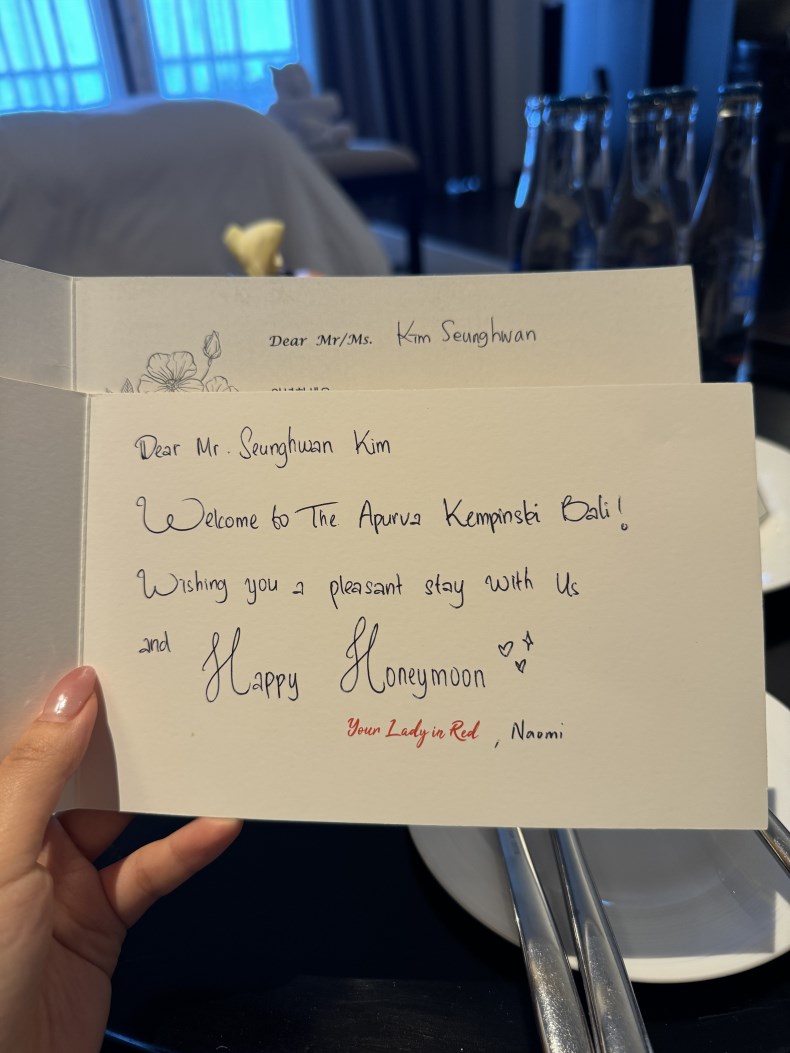 Dear Mr/Ms. Kim Seunghwan
Dear Mr. Seunghwan Kim
Welcome to The Apurva Kempinski Bali!
Wishing you a pleasant stay with Us
and Happy Honeymoon
Your Lady in Red, Naomi